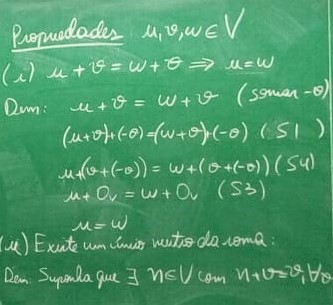 Propriedades u, v, w ∈ V
(i) u + v = w + v ⇒ u = w
Dem: u + v = w + v (somar -v)
(u+v)+(-v)=(w+v)+(-v) (S1)
u+(v+(-v)) = w+(v+(-v)) (S4)
u + 0v = w + 0v (S3)
u = w
(ii) Existe um único neutro da soma:
Dem. Suponha que ∃ n∈V com n+v=v, ∀v